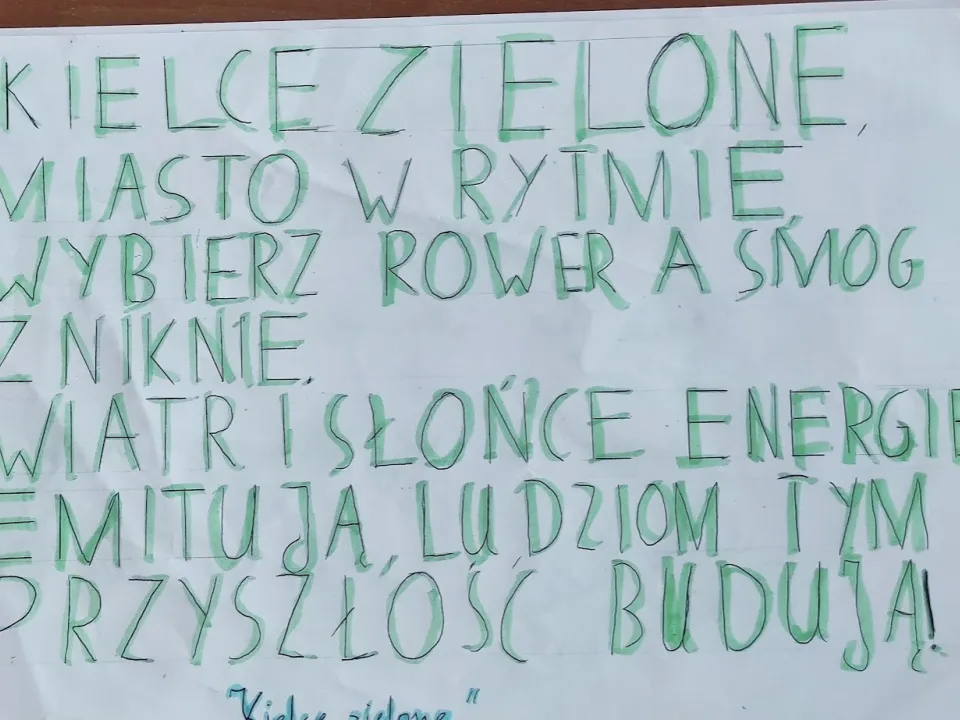 KIELCE ZIELONE,
MIASTO W RYTMIE,
WYBIERZ ROWER A SMOG
ZNIKNIE.
WIATR I SŁOŃCE ENERGIE
EMITUJĄ, LUDZIOM TYM
PRZYSZŁOŚĆ BUDUJĄ!
"Kielce zielone"